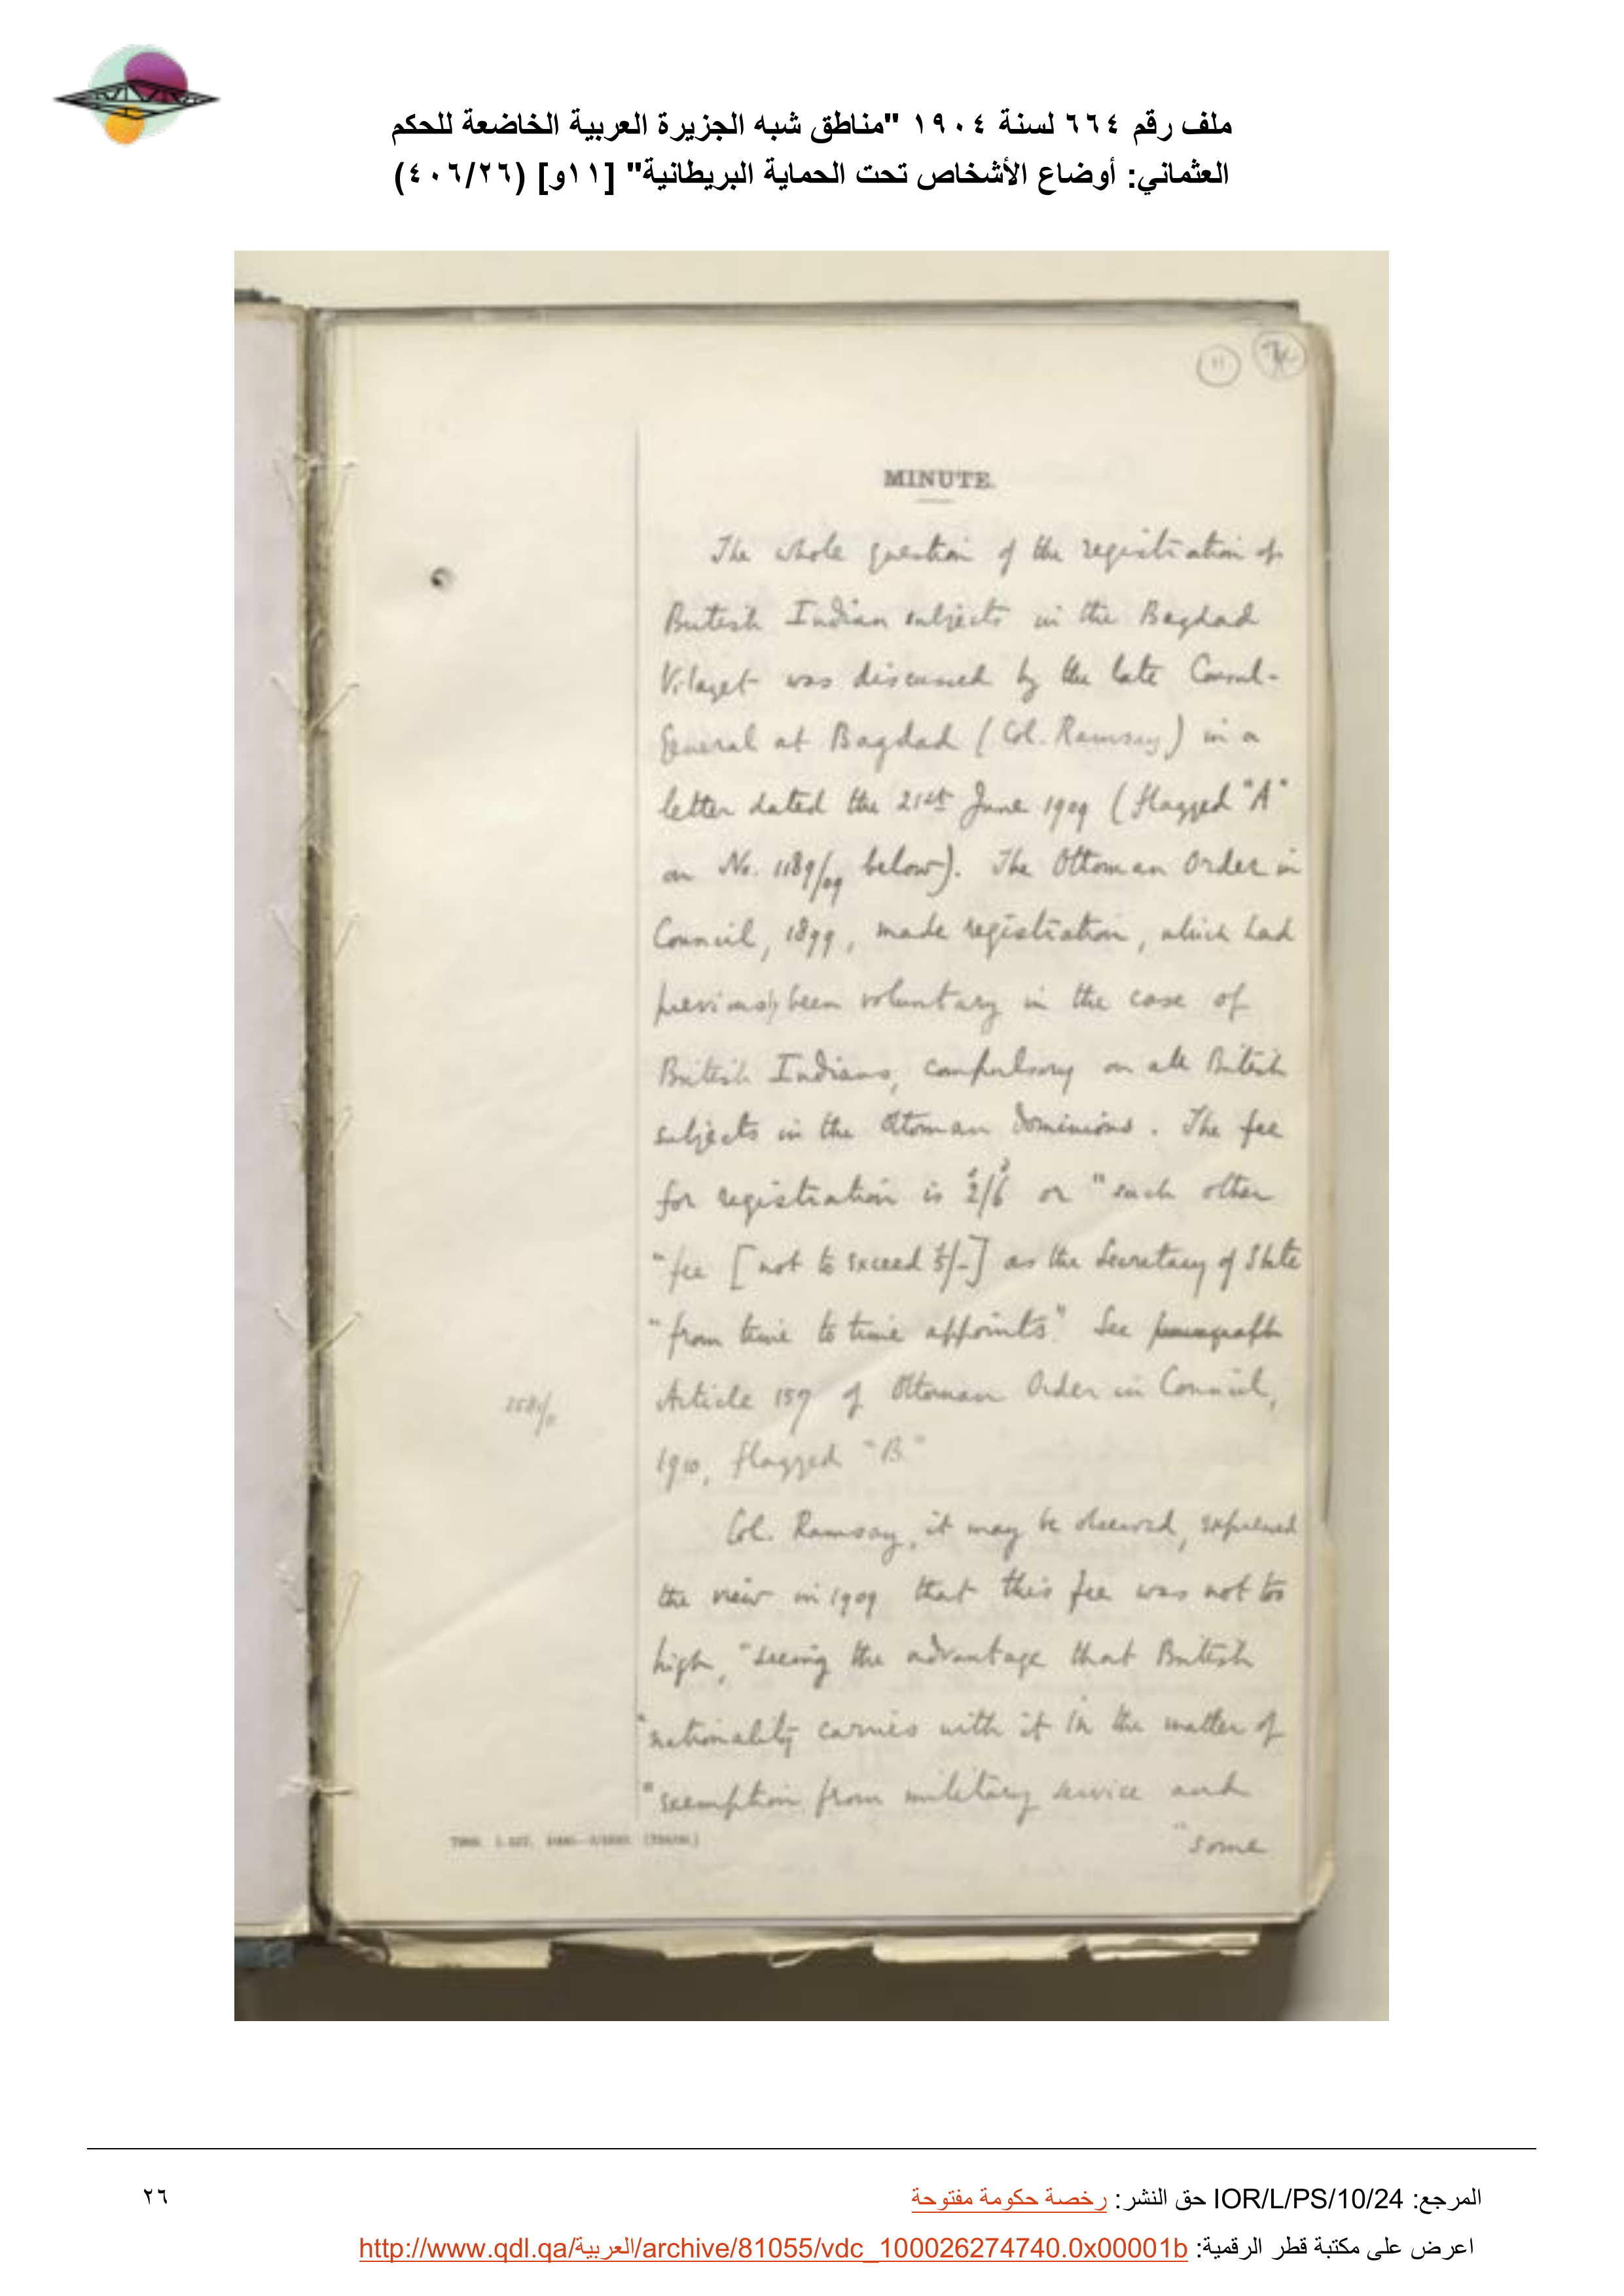 ملف رقم ٦٦٤ لسنة ١٩٠٤ "مناطق شبه الجزيرة العربية الخاضعة للحكم
العثماني: أوضاع الأشخاص تحت الحماية البريطانية" [١١و] (٤٠٦/٢٦)
11
MINUTE.
The whole question of the registration of
British Indian subjects in the Bagdad
Vilayet was discussed by the late Consul-
General at Bagdad (Col. Ramsay) in a
letter dated the 21st June 1909 (flagged "A"
on No. 1189/09 below). The Ottoman Order in
Council, 1899, made registration, which had
previously been voluntary in the case of
British Indians, compulsory on all British
subjects in the Ottoman Dominions. The fee
for registration is 2/6 or "such other
"fee [not to exceed 5/-] as the Secretary of State
"from time to time appoints" See paragraph
Article 157 of Ottoman Order in Council,
1910, flagged "B"
Col. Ramsay, it may be observed, expressed
the view in 1909 that this fee was not too
high, "seeing the advantage that British
"nationality carries with it in the matter of
"exemption from military service and
"some
المرجع: IOR/L/PS/10/24 حق النشر: رخصة حكومة مفتوحة
٢٦
اعرض على مكتبة قطر الرقمية: http://www.qdl.qa/العربية/archive/81055/vdc_100026274740.0x00001b